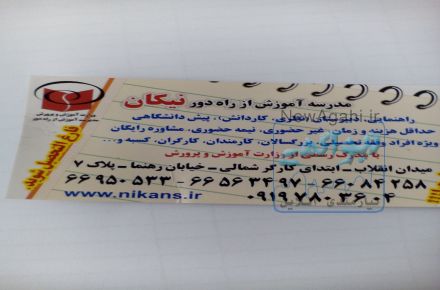 مدرسه آموزش از راه دور نیکان
وزارت آموزش و پرورش
راهنمایی، کاردانش)، پیش دانشگاهی
حداقل هزینه و زمان، غیر حضوری، نیمه حضوری، مشاوره رایگان
ویژه افراد بزرگسالان، کارمندان، کارگران، کسبه و...
با مدرک رسمی از وزارت آموزش و پرورش
میدان انقلاب - ابتدای کارگر شمالی - خیابان رهنما - پلاک ۷
۶۶۹۵۰۵۳۳ - ۶۶۵۶۳۴۹۷ - ۶۶۰۸۴۲۵۸
www.nikans.ir
۰۹۱۹۷۸۰۳۶۰۴
فارغ التحصیل شوید
NewAgahi.ir